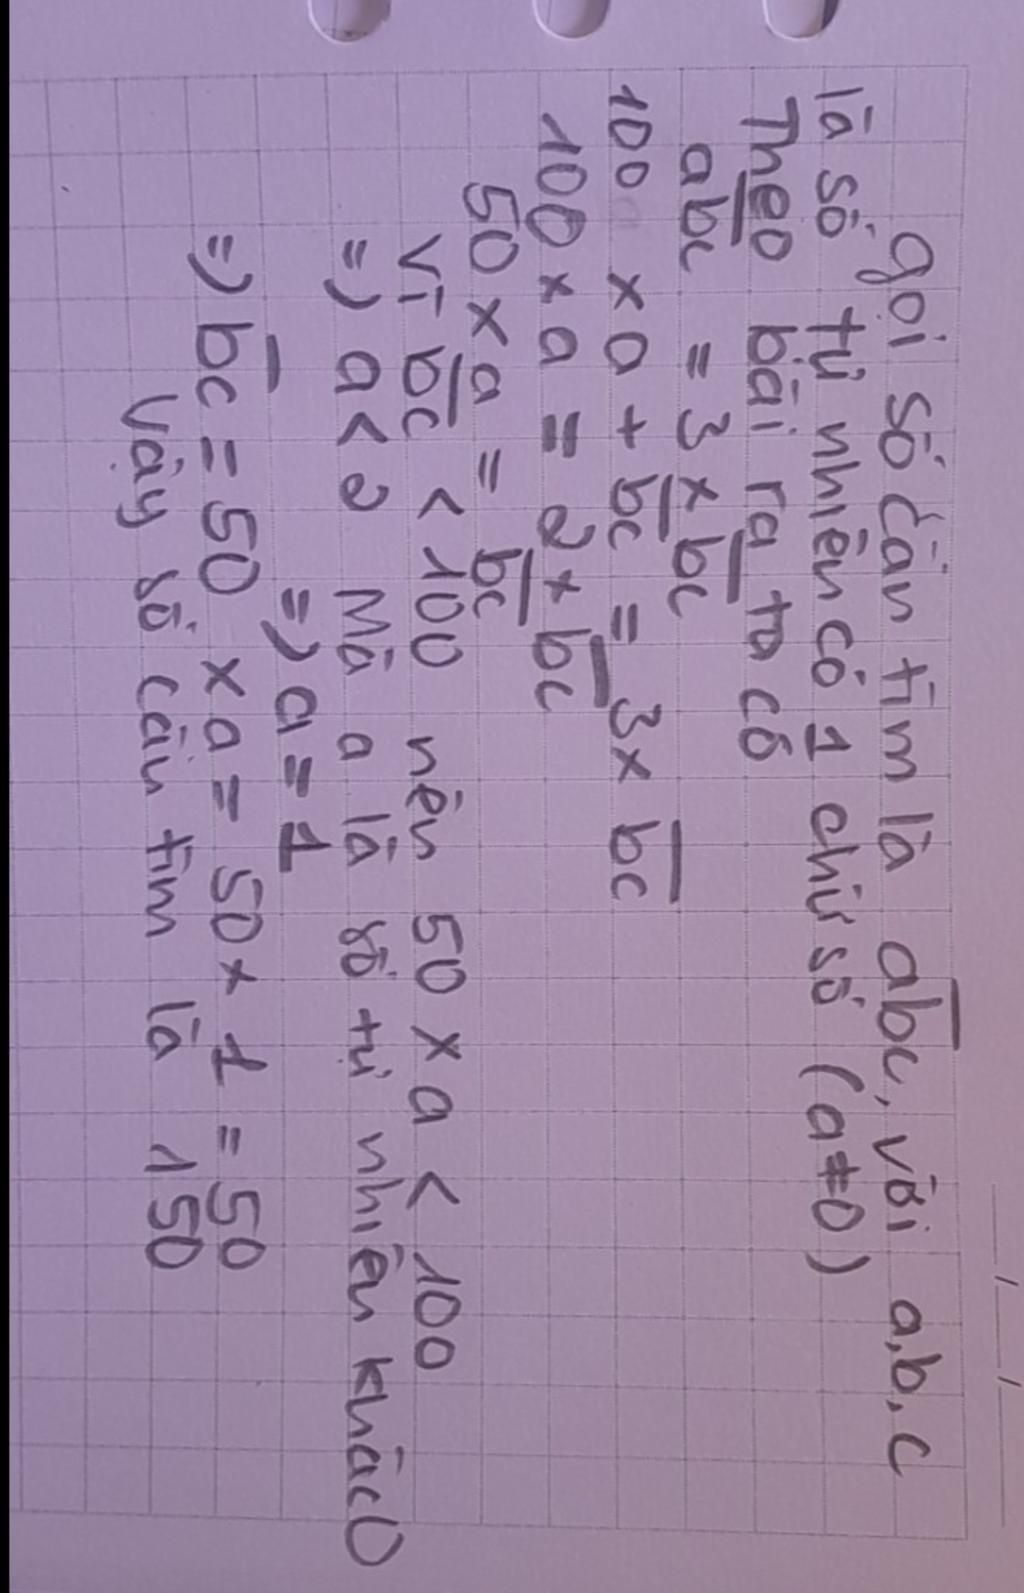 gọi số cần tìm là abc, với a,b,c
là số tự nhiên có 1 chữ số (a≠0)
Theo bài ra ta có
abc = 3 x bc
100 x a + bc = 3 x bc
100 x a = 2 x bc
50 x a = bc
Vì bc < 100 nên 50 x a < 100
=) a < 2 Mà a là số tự nhiên khác 0
=) a = 1
=) bc = 50 x a = 50 x 1 = 50
Vậy số cần tìm là 150